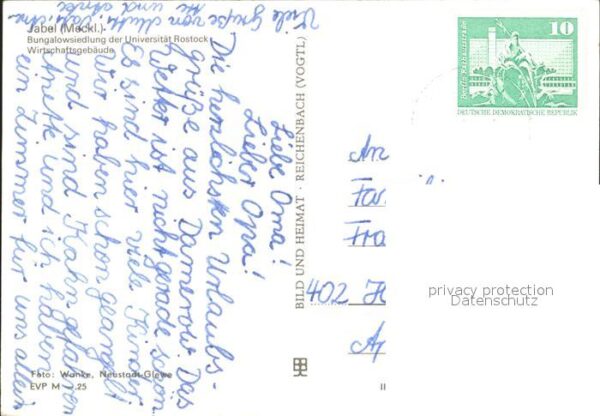 Jabel (Meckl.)
Bungalowsiedlung der Universität Rostock
Wirtschaftsgebäude
Liebe Oma!
Lieber Opa!
Die herzlichsten Urlaubs-
grüße aus Damerow. Das
Wetter ist nicht gerade schön
Es sind hier viele Kinder
Wir haben schon geangelt
und sind Kahn gefahren
und ich haben
ein Zimmer für uns allein
Viele Grüße von Mutti, Vati,
und
BILD UND HEIMAT · REICHENBACH (VOGTL)
Berlin, Rathausstraße
10
DEUTSCHE DEMOKRATISCHE REPUBLIK
An
Fa
Fra
402 H
privacy protection
Datenschutz
Foto: Wanke, Neustadt-Glewe
EVP M -.25
II